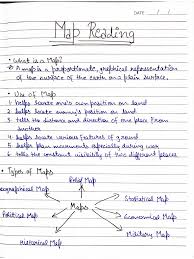 DATE / /
Map Reading
• What is a Map?
• A map is a proportionate, graphical representation
of two surface of the earth on a plain surface.
• Use of Map
1 helps locate one's own position on land
2 helps locate enemy's position on land
3 tells the distance and direction of one place from
another
4 helps locate various features of ground
5 helps plan movements especially during war
6 tells the constant visibility of two different places
• Types of Maps
Relief Map
Geographical Map
Statistical Map
Political Map
Maps
Economical Map
Historical Map
Military Map